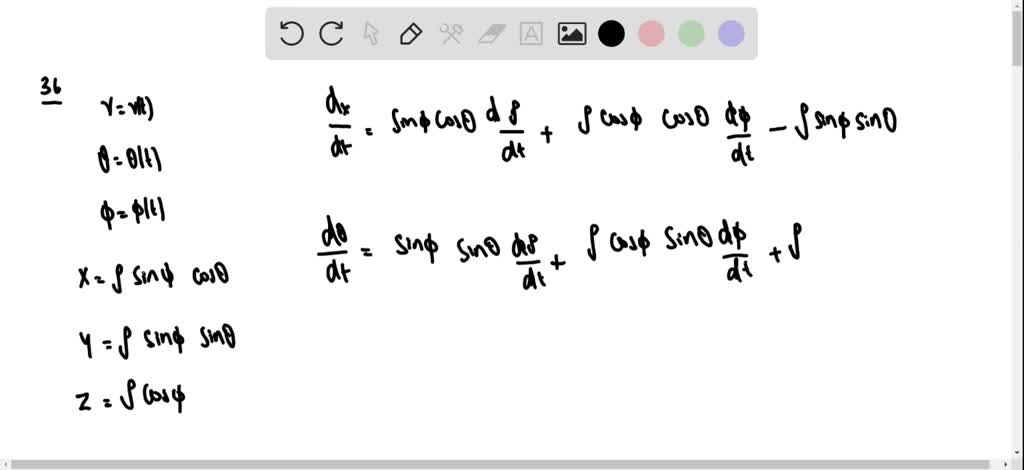 36
r = r(t)
θ = θ(t)
φ = φ(t)
x = ρ sinφ cosθ
y = ρ sinφ sinθ
z = ρ cosφ
dx/dt = sinφ cosθ dρ/dt + ρ cosφ cosθ dφ/dt − ρ sinφ sinθ
dθ/dt = sinφ sinθ dρ/dt + ρ cosφ sinθ dφ/dt + ρ